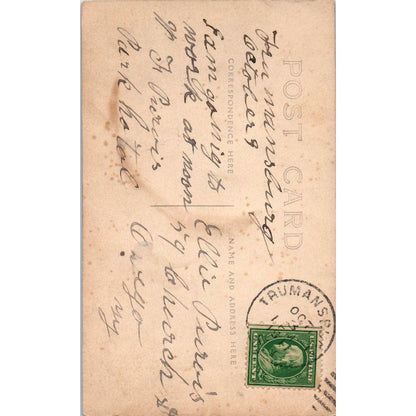 POST CARD
CORRESPONDENCE HERE
NAME AND ADDRESS HERE
Trumansburg
October 9
I am going to
work at noon
W F Purvis
Park Hotel
Ellie Purvis
59 Church St
Owego
NY
TRUMANSB
OC